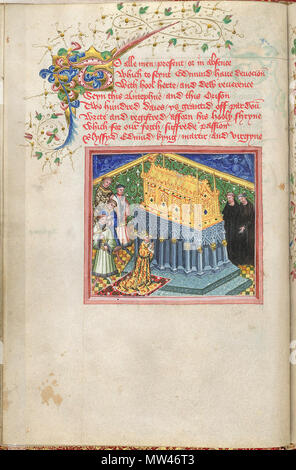 To alle men present or in absence
Which to seynt Edmund have devocion
With hool herte and dew reverence
Seyn this antephne and this Orison
Two hundred daies ys grantid off pardoun
Wrete and registred afforn his hooly shryne
Which for our feith suffrede passioun
Blyssyd Edmund kyng martir and virgyne
MW46T3